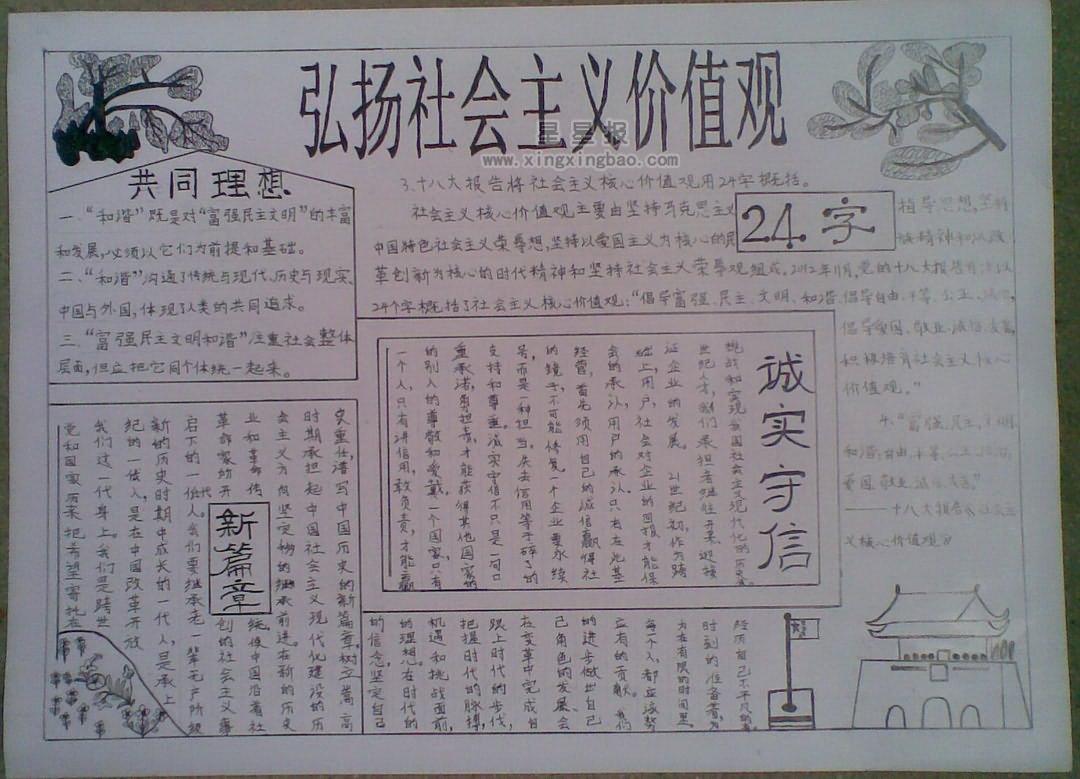 弘扬社会主义价值观
星星报
www.xingxingbao.com
共同理想
一、“和谐”既是对“富强民主文明”的丰富
和发展,必须以它们为前提和基础。
二、“和谐”沟通了传统与现代、历史与现实、
中国与外国,体现了人类的共同追求。
三、“富强民主文明和谐”注重社会整体
层面,但应把它同个体统一起来。
3.十八大报告将社会主义核心价值观用24字概括。
24字
社会主义核心价值观主要由坚持马克思主义指导思想,坚持
中国特色社会主义荣辱想,坚持以爱国主义为核心的民族精神和以改
革创新为核心的时代精神和坚持社会主义荣辱观组成。2012年11月,党的十八大报告首次以
24个字概括了社会主义核心价值观:“倡导富强、民主、文明、和谐,倡导自由、平等、公正、法治,
倡导爱国、敬业、诚信、友善,
积极培育社会主义核心
价值观。”
4.“富强、民主、文明、
和谐;自由、平等、公正、法治;
爱国、敬业、诚信、友善”
——十八大报告 社会主
义核心价值观
诚实守信
一个人,只有讲信用,敢负责,才能赢
的别人的尊敬和爱戴,一个国家只有
重承诺,勇担责,才能获得其他国家的
支持和尊重。诚实守信不只是一句口
号,而是一种担当,失去信用等于碎了的
的镜子,不可能修复。一个企业要永续
经营,首先须用自己的诚信赢得社
会的承认,用户的承认。只有在此基
础上,用户、社会对企业的回报才能保
证企业的发展。 21世纪初,作为跨
世纪人才,我们承担者继往开来,迎接
挑战和实现我国社会主义现代化的历史
新篇章
党和国家历来把希望寄托在
我们这一代身上。我们是跨世
纪的一代人,是在中国改革开放
新的历史时期中成长的一代人,是承上
启下的一代人。我们要继承老一辈无产阶级
革命家所开创的社会主义事
业和革命传统,使中国沿着社
会主义方向坚定物的继承前进。在新的历史
时期承担起中国社会主义现代化建设的历
史重任,谱写中国历史的新篇章,树立崇高
的信念,坚定自己
的理想,在时代的
机遇和挑战面前,
把握时代的脉搏,
跟上时代的步伐,
在变革中完成自
己角色的发展,会
的进步做出自己
应有的贡献。我们
每个人,都应该努
力在有限的时间里
时刻的准备着,为
经历自己不平凡的